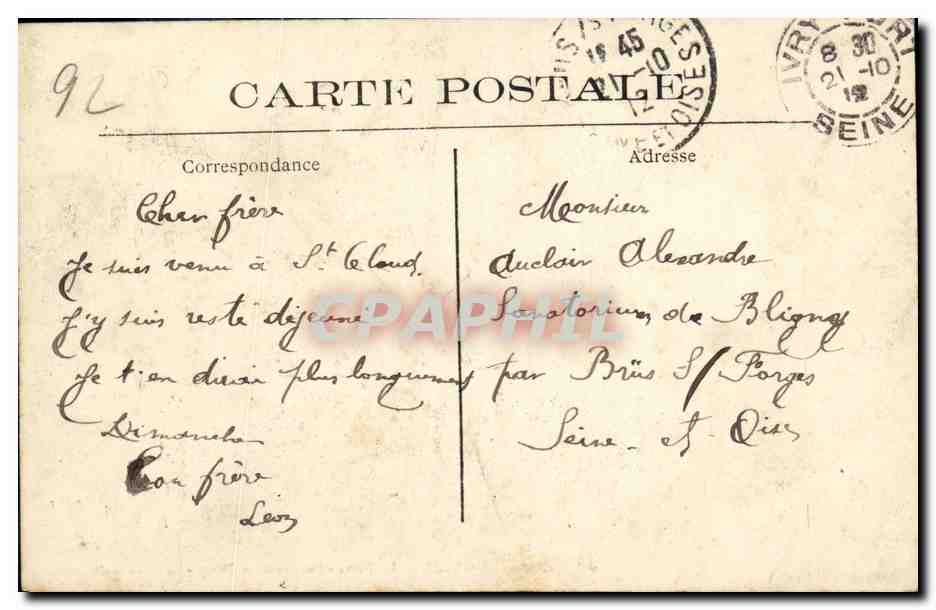 92
CARTE POSTALE
45
10
12
ET OISE
IVRY PORT
8 30
21-10
12
SEINE
Correspondance
Cher frère
Je suis venu à St Cloud
J'y suis resté déjeuné
Je t'en dirai plus longuement
Dimanche
Ton frère
Léon
Adresse
Monsieur
Auclair Alexandre
Sanatorium de Bligny
par Brüs S/ Forges
Seine-et-Oise
CPAPHIL